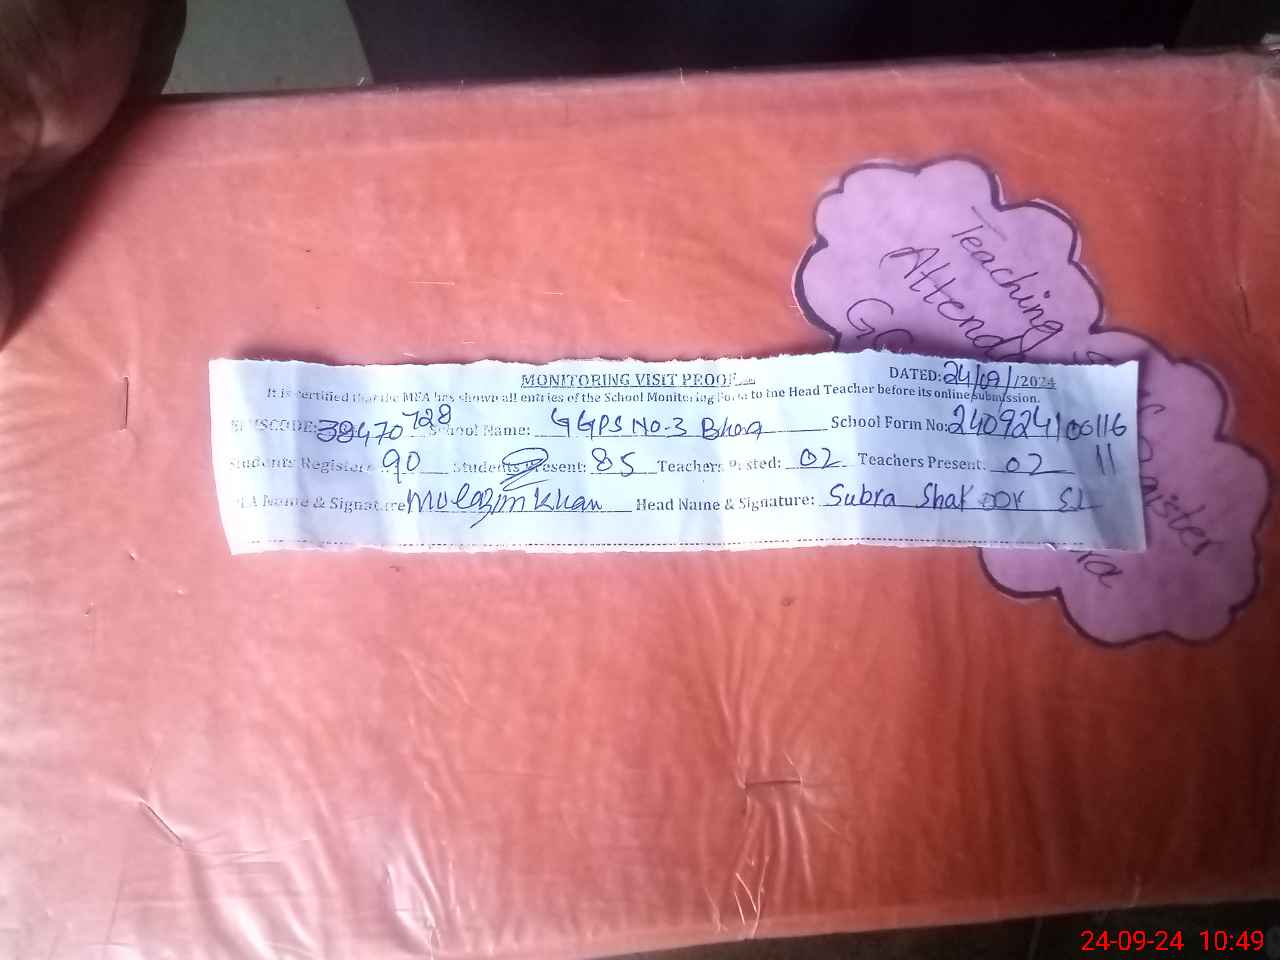 Teaching
Attend
MONITORING VISIT PROOF
DATED: 24/09/2024
It is certified that the MEA has shown all entries of the School Monitoring Form to the Head Teacher before its online submission.
School Name: GGPS No-3 School Form No: 2409241
Students Registered 90 Students Present: 85 Teachers Posted: 02 Teachers Present: 02
Name & Signature Mulazim Khan Head Name & Signature: Subra Shakoor
24-09-24 10:49